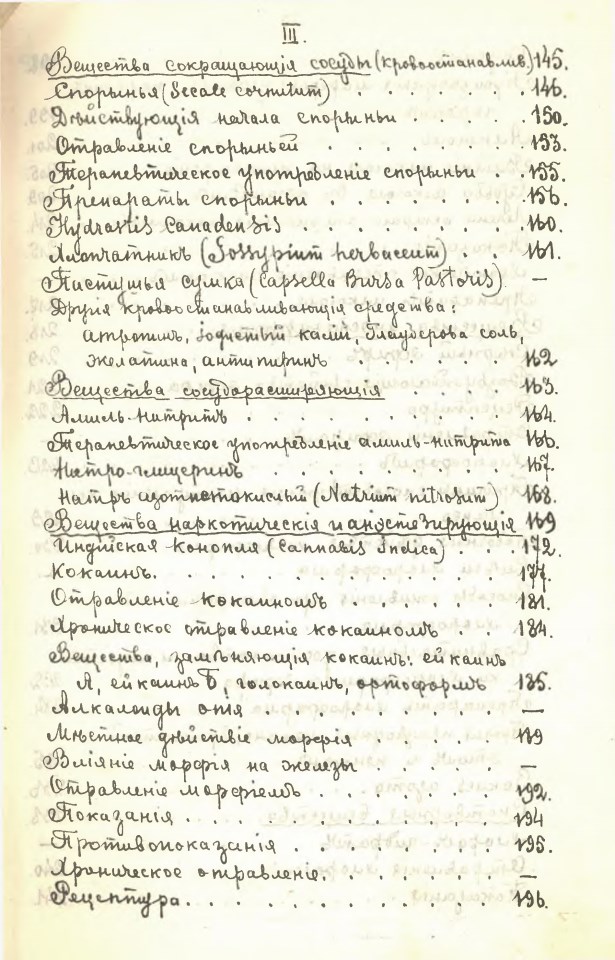 III.
Вещества сокращающія сосуды (кровоостанавлив) 145.
Спорынья (Secale cornutum) . . . . . . 146.
Дѣйствующія начала спорыньи . . . . 150.
Отравленіе спорыньей . . . . . . . 153.
Терапевтическое употребленіе спорыньи . 155.
Препараты спорыньи . . . . . . . 156.
Hydrastis Canadensis . . . . . . . 160.
Хлопчатникъ (Gossypium herbaceum) . . 161.
Пастушья сумка (Capsella Bursa Pastoris) —
Другія кровоостанавливающія средства:
атропинъ, іодистый калій, Глауберова соль,
желатина, антипиринъ . . . . . . 162
Вещества сосударасширяющія . . . . . 163.
Амилъ-нитритъ . . . . . . . . . 164.
Терапевтическое употребленіе амилъ-нитрита 166.
Нитро-глицеринъ . . . . . . . . 167.
Натръ азотистокислый (Natrium nitrosum) 168.
Вещества наркотическія и анэстезирующія 169
Индійская конопля (Cannabis indica) . . . 172.
Кокаинъ. . . . . . . . . . . . 177.
Отравленіе кокаиномъ . . . . . . 181.
Хроническое отравленіе кокаиномъ . . . 184.
Вещества, замѣняющія кокаинъ: ейкаинъ
А, ейкаинъ Б, голокаинъ, ортоформъ 185.
Алкалоиды опія . . . . . . . . —
Мѣстное дѣйствіе морфія . . . . . 189
Вліяніе морфія на железы . . . . . —
Отравленіе морфіемъ . . . . . . . 192.
Показанія . . . . . . . . . . . 194
Противопоказанія . . . . . . . . 195.
Хроническое отравленіе. . . . . . . —
Рецептура. . . . . . . . . . . 196.